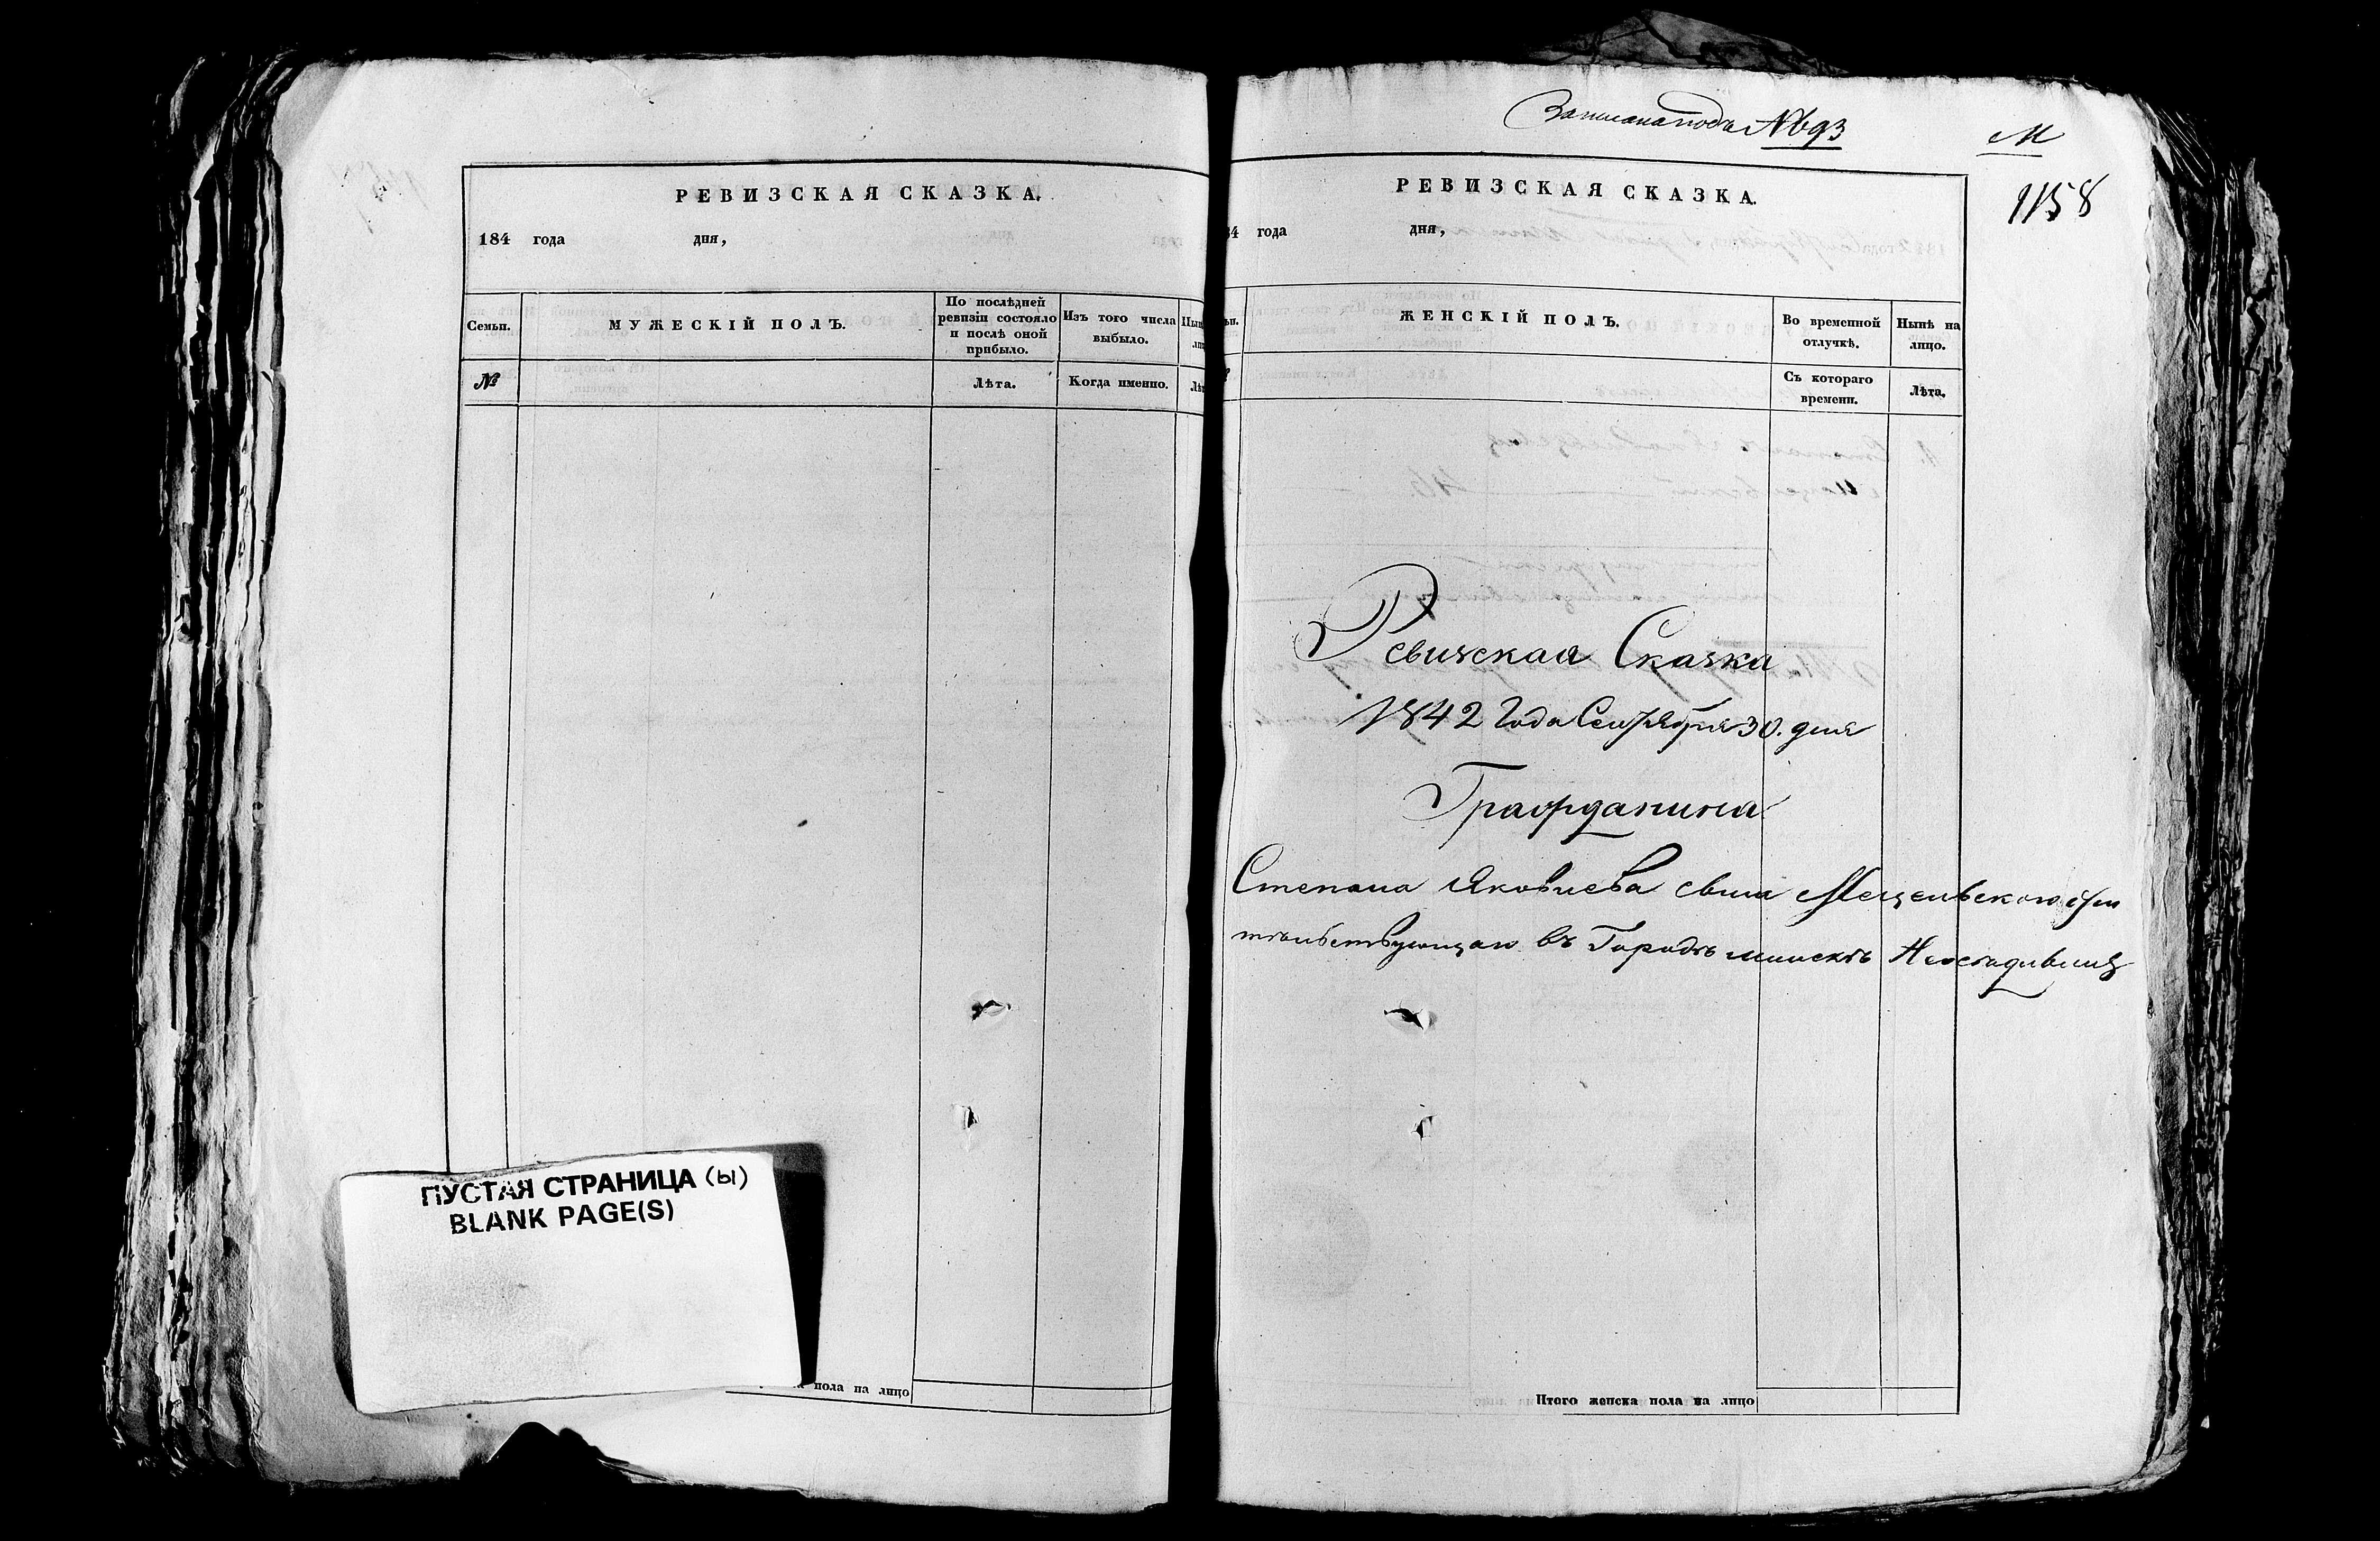 РЕВИЗСКАЯ СКАЗКА.
184 года дня,
Семьи. МУЖЕСКІЙ ПОЛЪ. По послѣдней ревизіи состояло и послѣ оной прибыло. Изъ того числа выбыло.
№ Лѣта. Когда именно.
пола на лицо
ПУСТАЯ СТРАНИЦА (Ы)
BLANK PAGE(S)
Записана подъ №693
М
1158
РЕВИЗСКАЯ СКАЗКА.
84 года дня,
ЖЕНСКІЙ ПОЛЪ. Во временной отлучкѣ. Нынѣ на лицо.
Съ котораго времени. Лѣта.
Ревизская Сказка
1842 Года Сентября 30. дня
Гражданина
Степана Яковлева сына
въ Городѣ Минскѣ
Итого женска пола на лицо